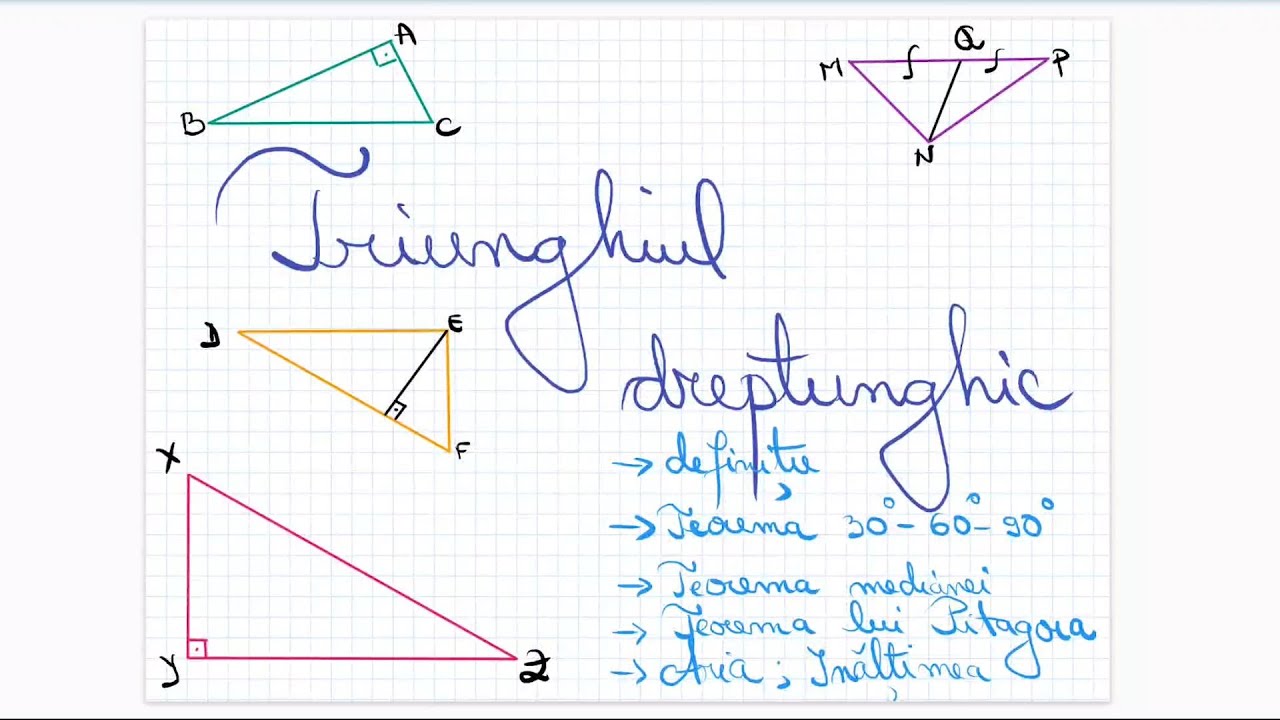 A
B
C
M
Q
P
N
Triunghiul
dreptunghic
D
E
F
→ definiție
→ Teorema 30° - 60° - 90°
→ Teorema medianei
→ Teorema lui Pitagora
→ Aria ; Înălțimea
X
Y
Z